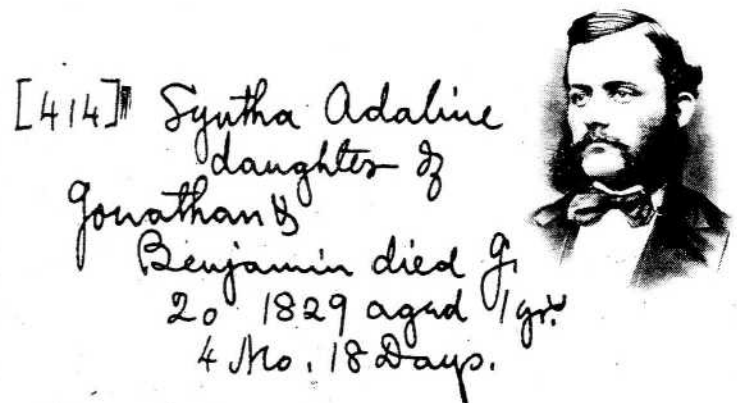 [414] Syntha Adaline
daughter of
Jonathan &
Benjamin died
20 1829 aged 1 yr.
4 Mo. 18 Days.